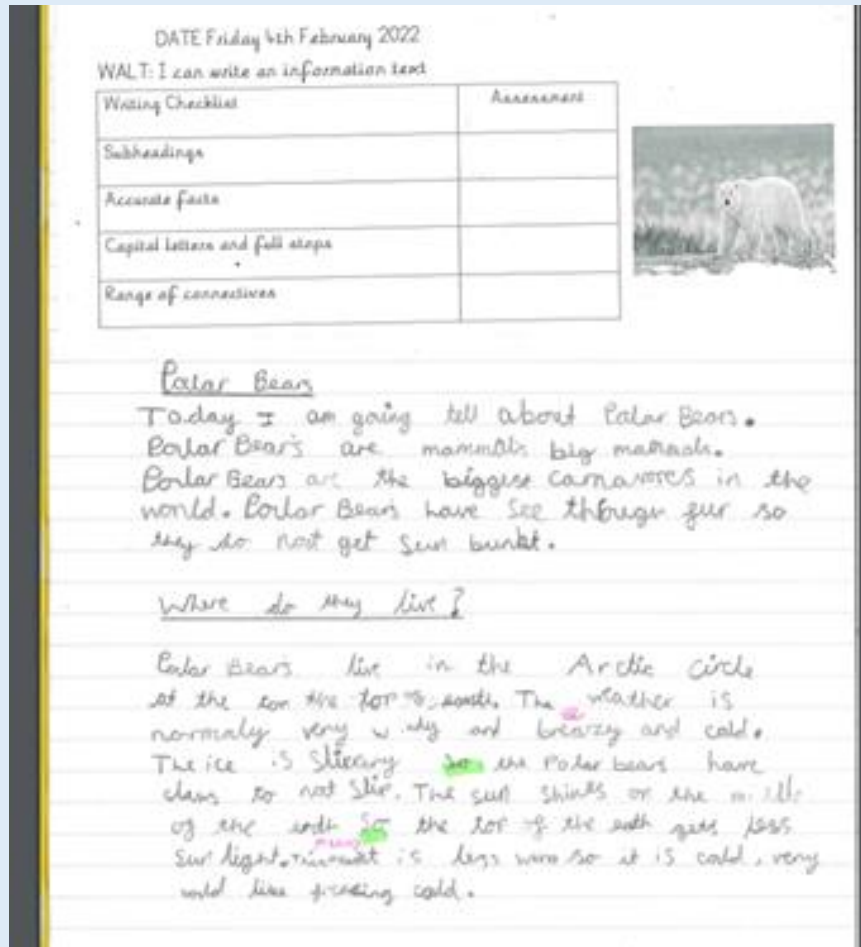 DATE Friday 4th February 2022
WALT: I can write an information text
Writing Checklist
Assessment
Subheadings
Accurate facts
Capital letters and full stops
Range of connectives
Polar Bears
Today I am going tell about Polar Bears.
Porlar Bears are mammals big
Porlar Bears are the biggest carnavores in the
world. Porlar Bears have see through fur so
they do not get sun
Where do they live?
Porlar Bears live in the Arctic circle
at the the top of The weather is
normaly very and and cold.
The ice is so the Polar bears have
claws to not slip. The sun shines on the
of the so the top of the gets less
sun light. is less so it is cold, very
like freezing cold.